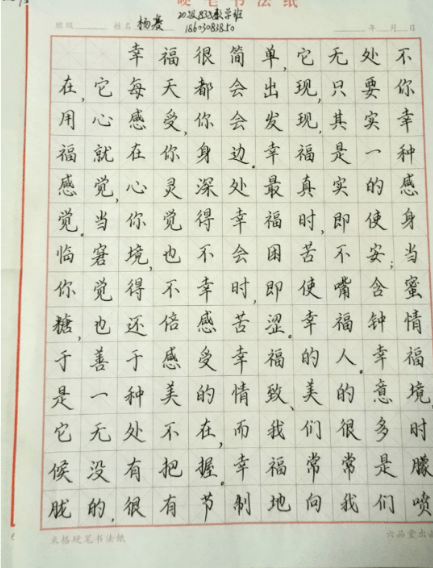 硬笔书法纸
班级 姓名 杨霞 年 月 日
幸福很简单,它无处不
在,它每天都会出现,只要你
用心感受,你会发现,其实幸
福就在你身边。幸福是一种
感觉,心灵深处最真实的感
觉。当你觉得幸福时,即使身
临窘境,也不会困苦不安;当
你觉得不幸时,即使嘴含蜜
糖,也还倍感苦涩。幸福钟情
于善于感受幸福的人。幸福
是一种美的情致、美的意境,
它无处不在,而我们很多时
候没有把握。幸福常常是朦
胧的,很有节制地向我们喷
六品堂出品